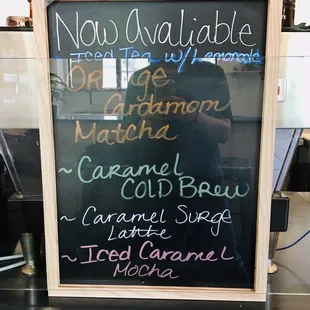 Now Avaliable
Iced Tea w/ Lemonade
Orange
Cardamom
Matcha
~ Caramel
COLD Brew
~ Caramel Surge
Latte
~ Iced Caramel
Mocha